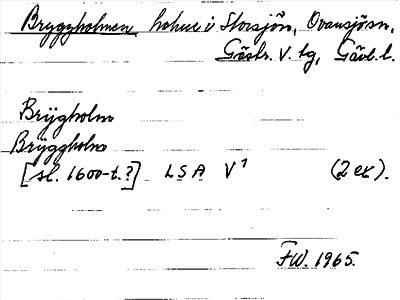 Bryggholmen, holme i Storsjön, Ovansjö sn,
Gästr. V. tg, Gävl. l.
Brÿgholm
Brÿggholm
[sl. 1600-t.?] LSA V¹ (2 ex).
FW. 1965.